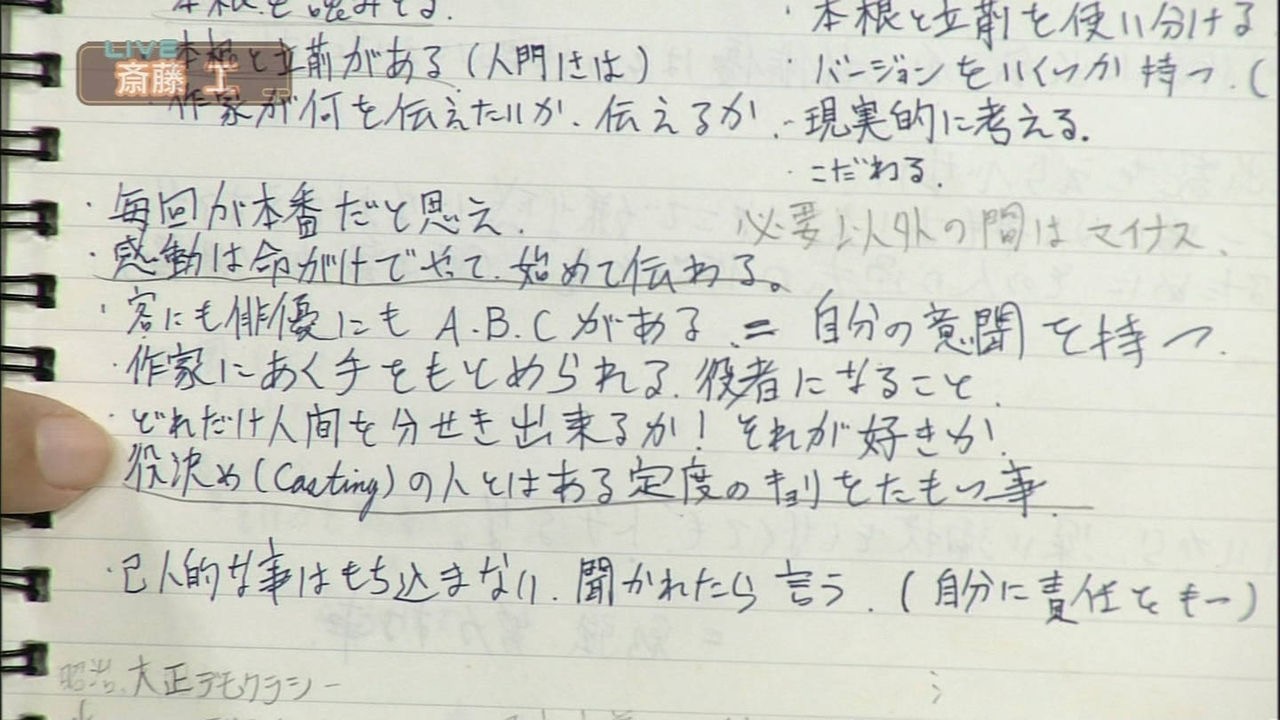 本根と立前を使い分ける
LIVE
斎藤 工
本根と立前がある(人門は)
・バージョンをいくつか持つ.(
作家が何を伝えたいか、伝えるか.
・現実的に考える.
・こだわる.
・毎回が本番だと思え.
必要以外の間はマイナス.
・感動は命がけでやって、始めて伝わる。
・客にも俳優にも A.B.Cがある. = 自分の意聞を持つ.
・作家にあく手をもとめられる.役者になること.
・どれだけ人間を分せき出来るか!それが好きか.
役決め(Casting)の人とはある定度のキョリをたもつ事.
・己人的な事はもち込まない.聞かれたら言う.(自分に責任をもつ)
大正デモクラシー